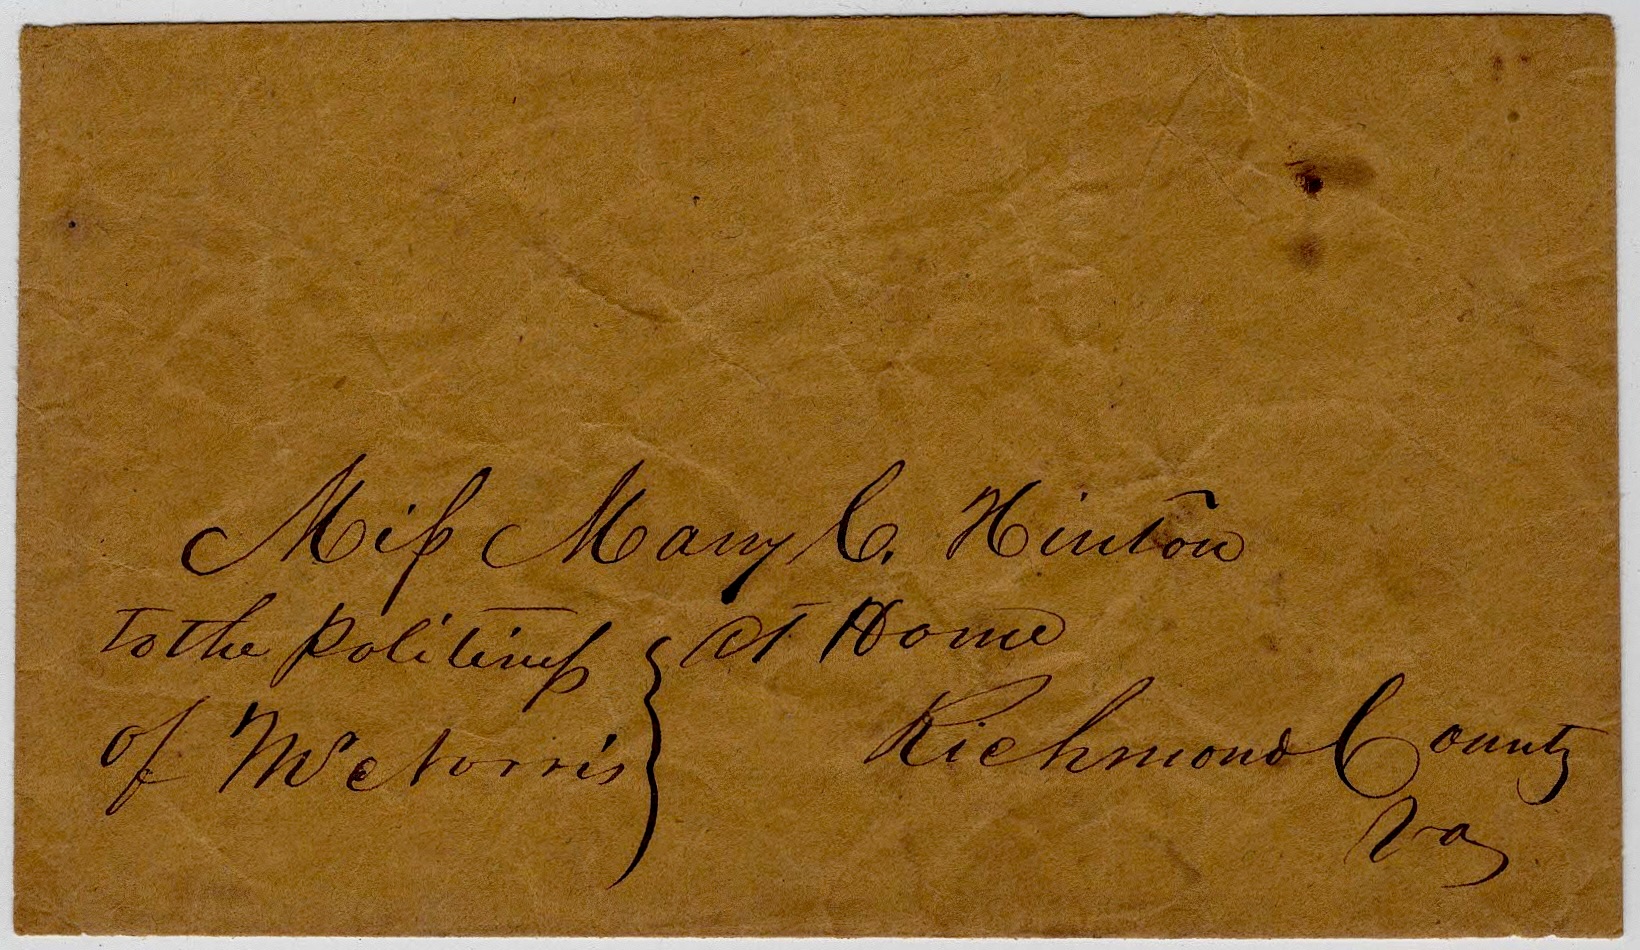 Miss Mary C. Hinton
To the politeness } At Home
of Mr Norris
Richmond County
Va